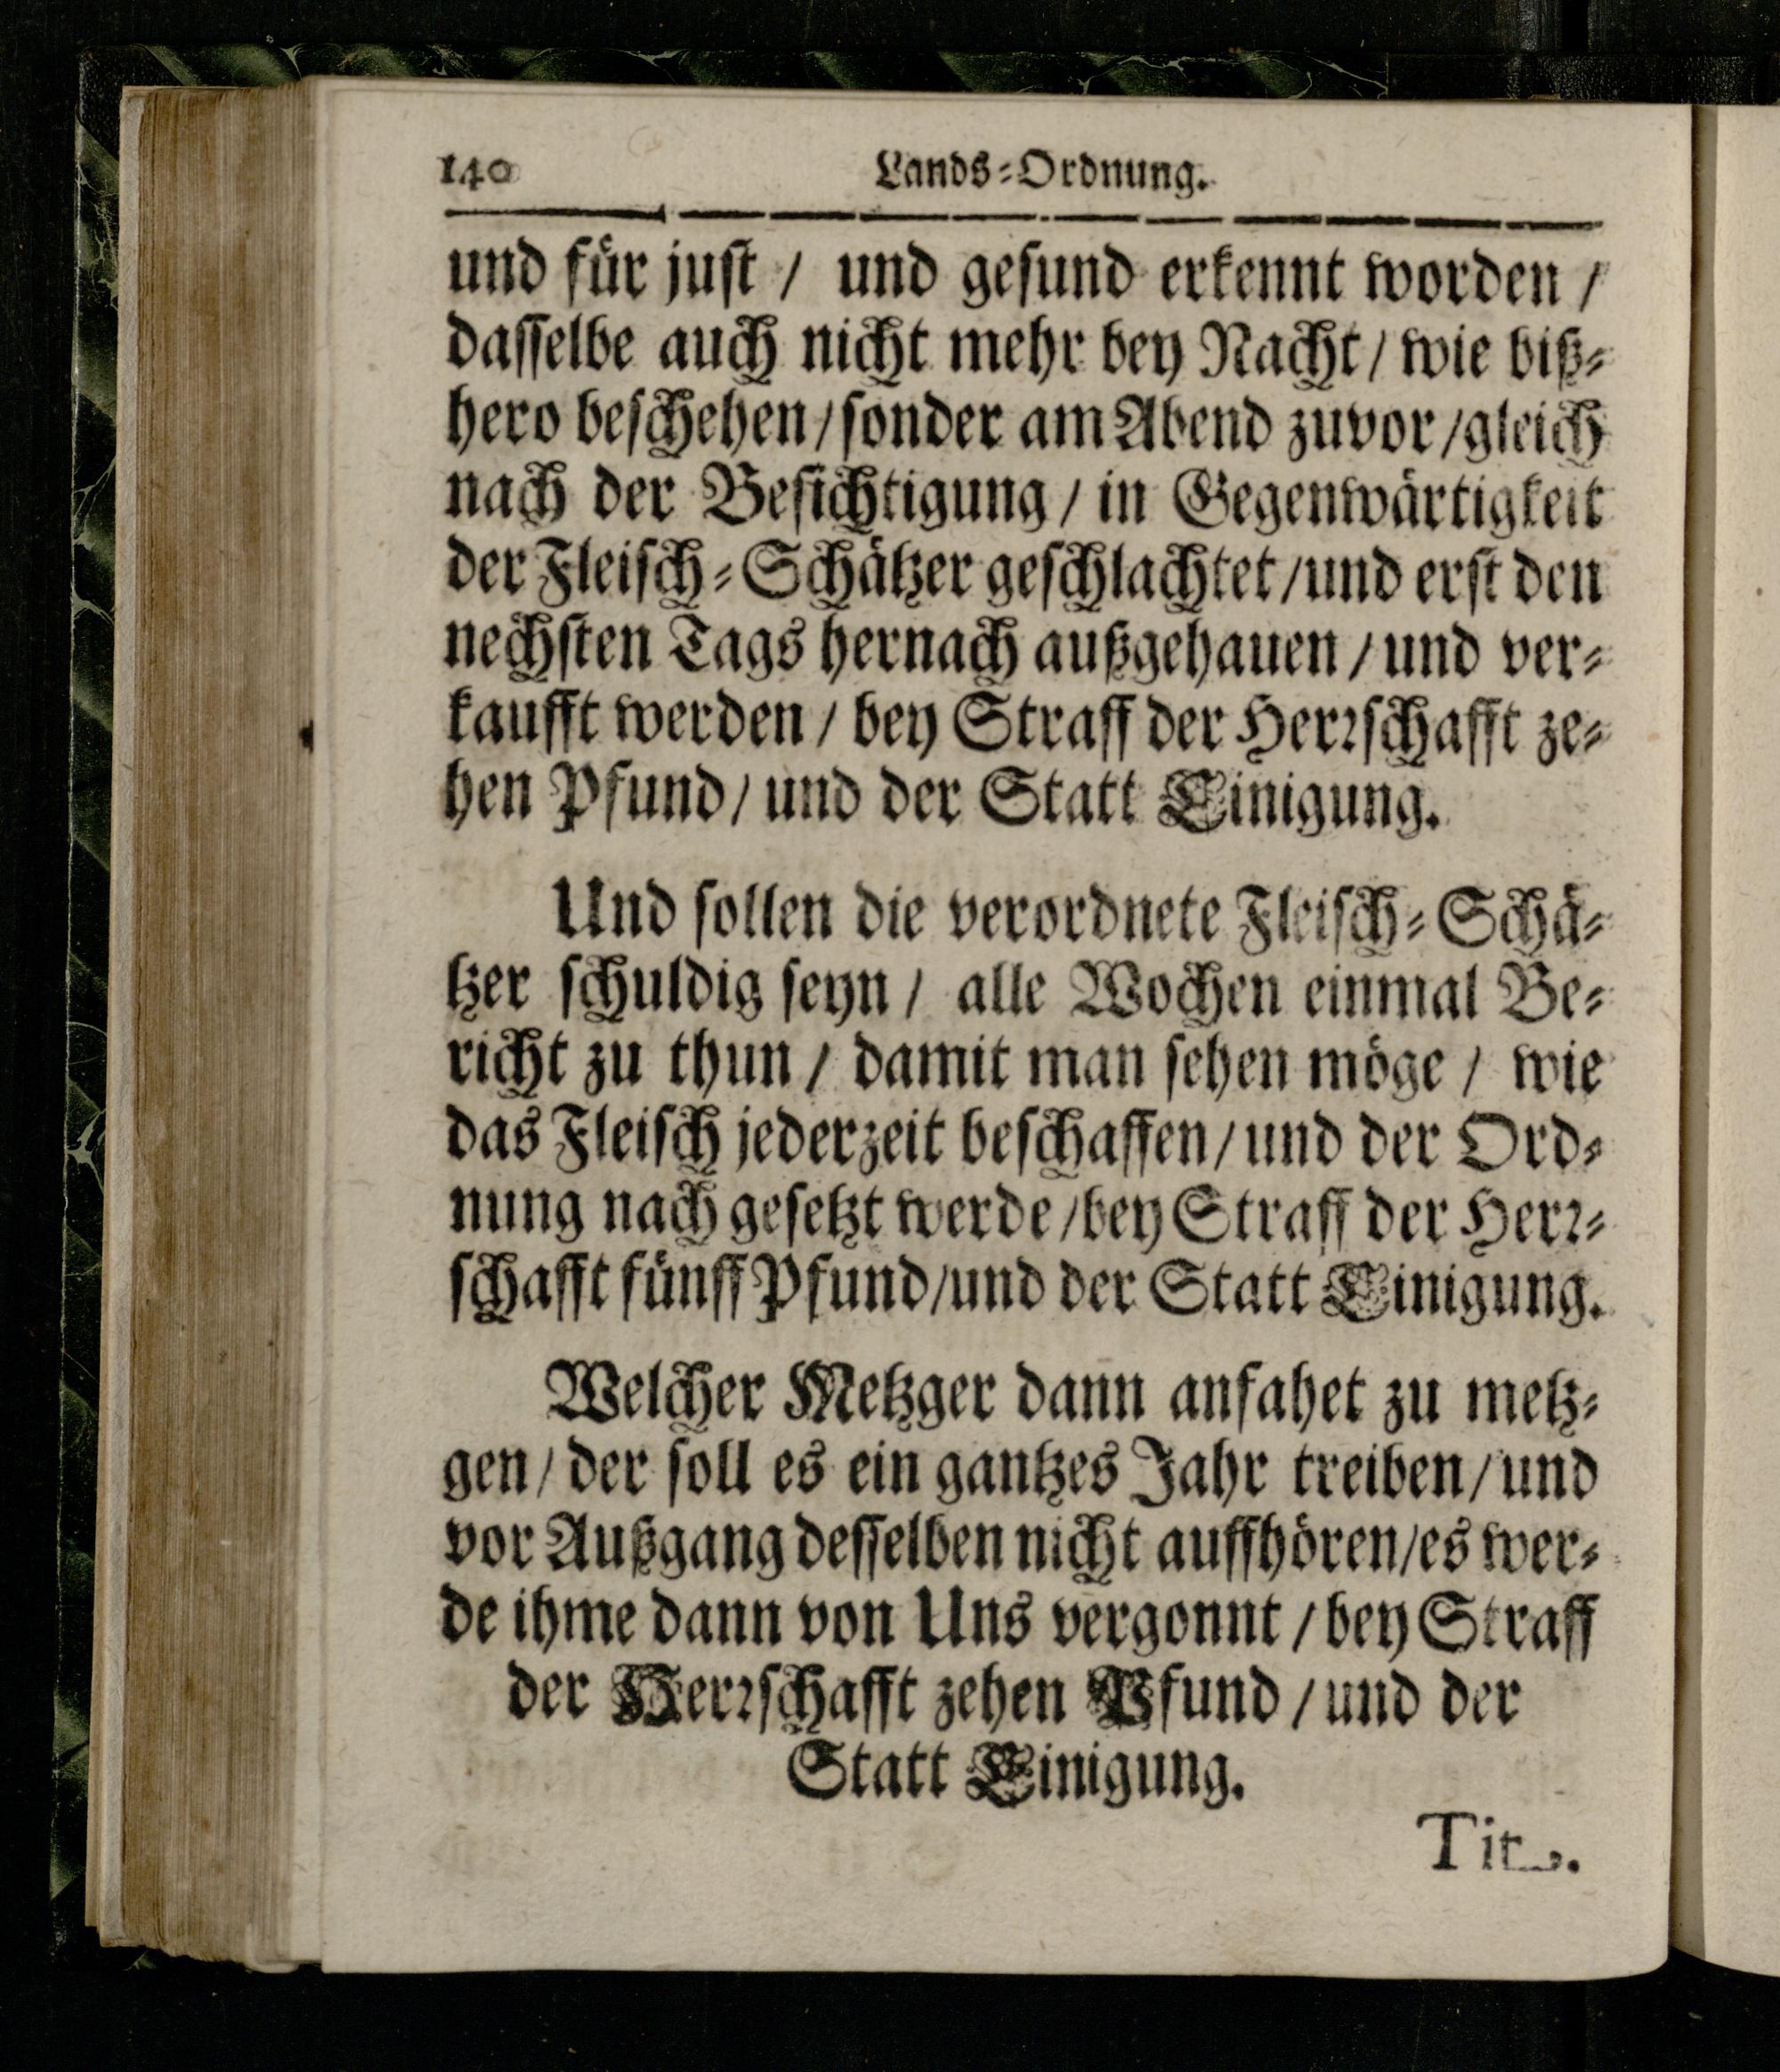 140 Lands-Ordnung.
und für just / und gesund erkennt worden /
dasselbe auch nicht mehr bey Nacht / wie biß-
hero beschehen / sonder am Abend zuvor / gleich
nach der Besichtigung / in Gegenwärtigkeit
der Fleisch-Schätzer geschlachtet / und erst den
nechsten Tags hernach außgehauen / und ver-
kaufft werden / bey Straff der Herrschafft ze-
hen Pfund / und der Statt Einigung.
Und sollen die verordnete Fleisch-Schä-
tzer schuldig seyn / alle Wochen einmal Be-
richt zu thun / damit man sehen möge / wie
das Fleisch jederzeit beschaffen / und der Ord-
nung nach gesetzt werde / bey Straff der Herr-
schafft fünff Pfund / und der Statt Einigung.
Welcher Metzger dann anfahet zu metz-
gen / der soll es ein gantzes Jahr treiben / und
vor Außgang desselben nicht auffhören / es wer-
de ihme dann von Uns vergonnt / bey Straff
der Herrschafft zehen Pfund / und der
Statt Einigung.
Tit.